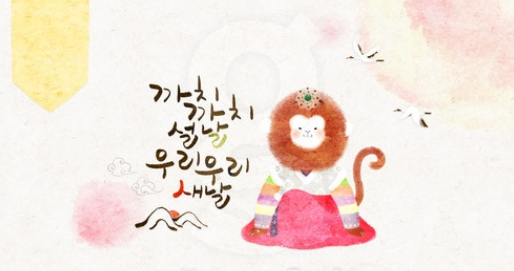 까치까치
설날
우리우리
새날